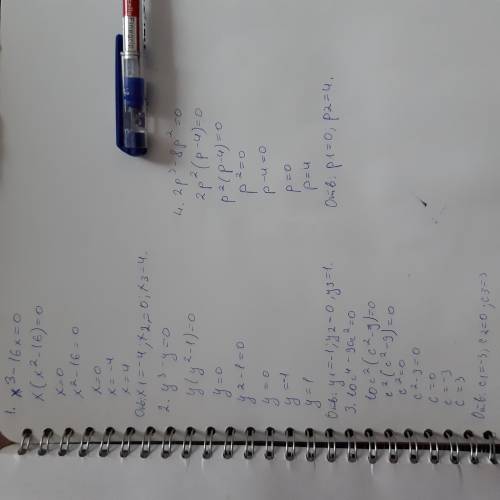 1. x3-16x=0
x(x²-16)=0
x=0
x²-16=0
x=0
x=-4
x=4
Отв: x1=-4, x2=0; x3=4.
2. y³-y=0
y(y²-1)=0
y=0
y2-1=0
y=0
y=-1
y=1
Отв: y1=-1; y2=0; y3=1.
c²(c²-9)=0
c²=0
c²-9=0
c=0
c=-3
c=3
Отв: c1=-3; c2=0; c3=3
4. 2p³-8p²=0
2p²(p-4)=0
p²(p-4)=0
p²=0
p-4=0
p=0
p=4
Отв: p1=0; p2=4.